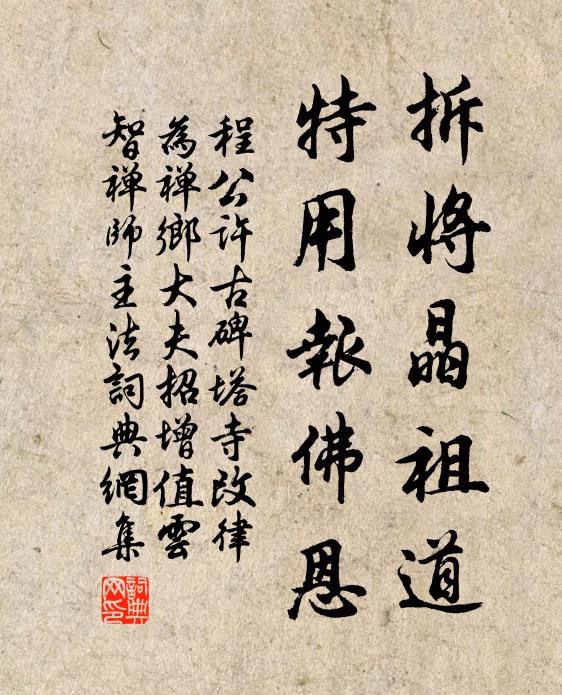 拆將晶祖道
特用報佛恩
程公許古碑塔寺改律
為禅鄉大夫招增值雲
智禅師主法詞典網集
詞典网印